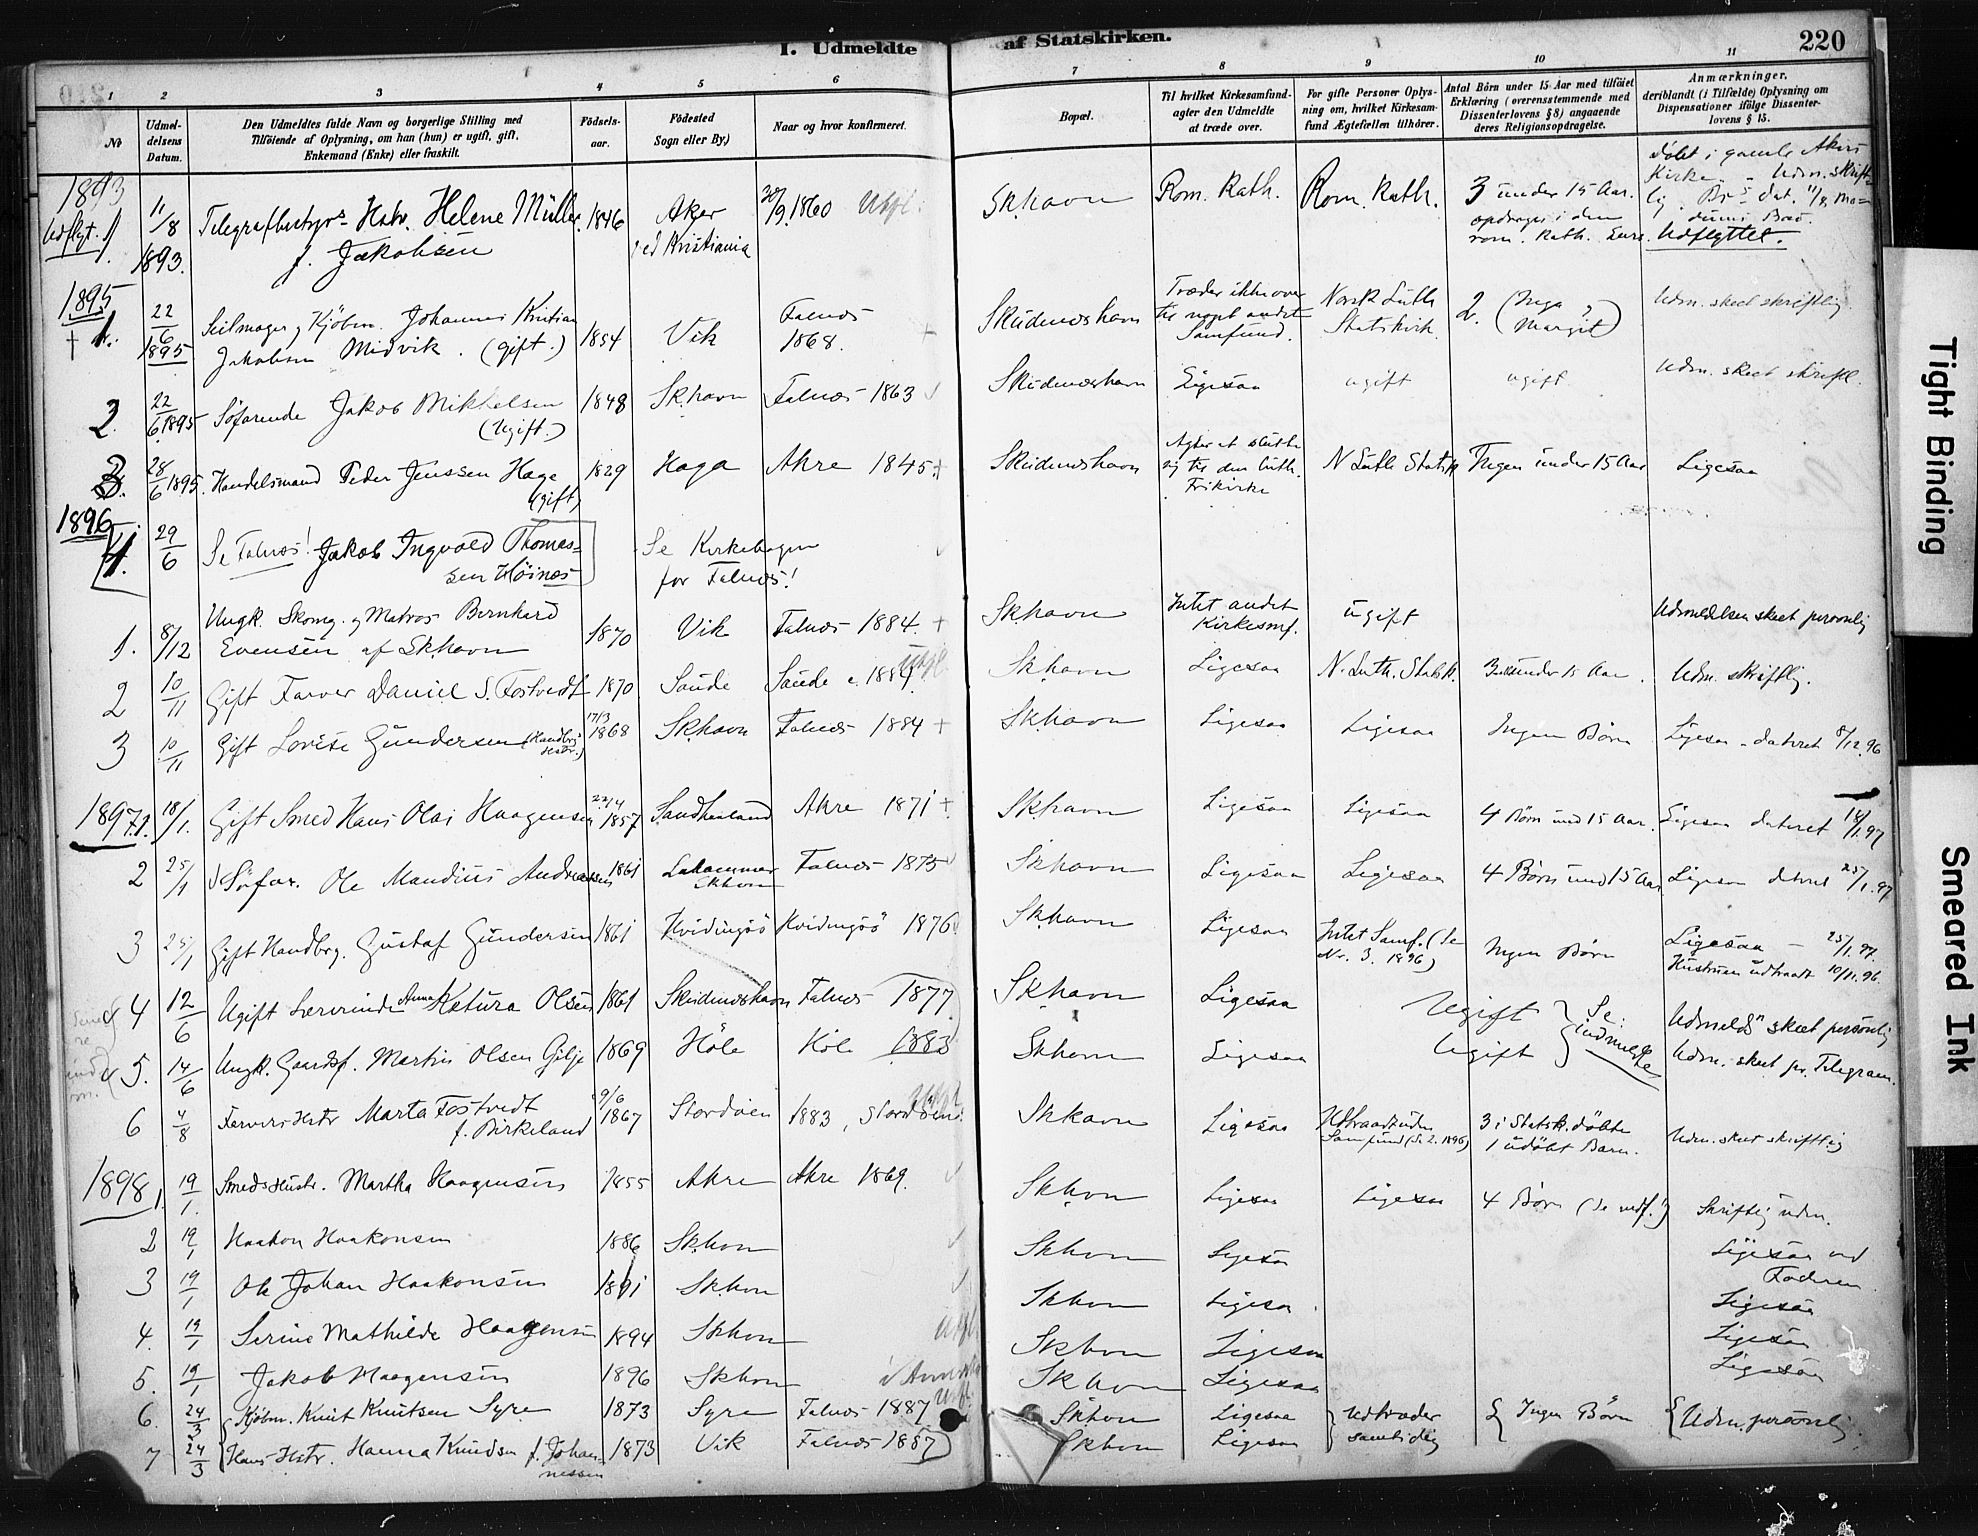 I. Udmeldte af Statskirken. 220
1 2 3 4 5 6 7 8 9 10 11
No
Udmeldelsens Datum.
Den Udmeldtes fulde Navn og borgerlige Stilling med
Tilföiende af Oplysning, om han (hun) er ugift, gift,
Enkemand (Enke) eller fraskilt.
Födselsaar.
Födested
Sogn eller By.)
Naar og hvor konfirmeret.
Bopæl.
Til hvilket Kirkesamfund-
agter den Udmeldte
at træde over.
For gifte Personer Oplys-
ning om, hvilket Kirkesam-
fund Ægtefællen tilhörer.
Antal Börn under 15 Aar med tilföiet
Erklæring (overensstemmende med
Dissenterlovens § 8) angaaende
deres Religionsopdragelse.
Anmærkninger,
deriblandt (i Tilfælde) Oplysning om
Dispensationer ifölge Dissenter-
lovens § 15.
1893
Udflyt. 1. 11/8 1893. Telegrafbestyrs Hstr. Helene Müller f. Jakobsen 1846 Aker ved Kristiania 30/9 1860 Utfl. Skhavn Rom. Kath. Rom. Kath. 3 under 15 Aar. opdrages i den rom. kath. døbt i gamle Akers Kirke. Udm. skriftlig Udflyttet.
1895
† 1. 22/6 1895 Seilmager og Kjøbm. Johannes Kristian Jakobsen Midvik. (gift.) 1854 Vik Falnes 1868. + Skudeneshavn Træder ikke over til noget andet Samfund. Norsk Luth Statskirk. 2. (Inga og Margit) Udm. skeet skriftlig.
2. 22/6 1895 Söfarende Jakob Mikkelsen (Ugift.) 1848 Skhavn Falnes 1863 Skudeneshavn Ligesaa ugift ugift. Udm. skeet skriftl.
3. 28/6 1895. Handelsmand Peder Jenssen Hage (gift) 1829 Haga Akre 1845. + Skudeneshavn Agter at slutte sig til den luth. Frikirke N Luth Statsk Ingen under 15 Aar Ligesaa
1896
1. 29/6 Se Falnes! Jakob Ingvald Thomas-
sen Höines Se Kirkebogen for Falnes!
1. 8/12 Ungk. Skomg. og Matros Bernhard Evensen af Skhavn 1870 Vik Falnes 1884. + Skhavn Intet andet Kirkesmf. ugift Udmeldelsen skeet personlig
2 10/11 Gift Farver Daniel S. Fostvedt 1870 Saude Saude 1884. Utfl. Skhavn Ligesaa N. Luth. Statsk. 3 under 15 Aar. Udm. skriftlig.
3 10/11 Gift Lovise Gundersen (Handbgs Hstr.) 17/3 1868 Skhavn Falnes 1884 + Skhavn Ligesaa Ligesaa Ingen Børn Ligesaa - dateret 8/12.96
1897. 1. 18/1. Gift Smed Hans Olai Haagensen 22/4 1857 Sandhaaland Akre 1871 + Skhavn Ligesaa Ligesaa 4 Børn und 15 Aar. Ligesaa dateret 18/1.97
2 25/1 Söfar. Ole Mandius Andreassen 1861 Lahammer Skhavn Falnes 1875 Skhavn Ligesaa Ligesaa 4 Børn und 15 Aar Ligesaa dateret 25/1.97
3 25/1 Gift Handbg. Gustaf Gundersen 1861 Hvidingsö Hvidingsö 1876 Skhavn Ligesaa Intet Samf. (Se Nr. 3. 1896) Ingen Børn Ligesaa - 25/1.97. Hustruen udtraadt 10/11.96.
4 12/6 Ugift Lærerinde Anna Katura Olsen 1861 Skudeneshavn Falnes 1877 Skhavn Ligesaa Ugift Se Indmeldte Udmelds skeet personlig
5. 14/6 Ungk. Gaardsf. Martin Olsen Gilje 1869 Höle Höle 1883 Skhavn Ligesaa Ugift Udm. skeet pr. Telegram.
6 4/8 Farvers Hstr Marta Fostvedt f. Birkeland 9/6 1867 Stordöen 1883, Stordöen. Utfl. Skhavn Ligesaa Udtraadt uden Samfund (S. 2. 1896) 3 i Statsk. døbte 1 udöbt Barn. Udm. skeet skriftlig
1898 1. 19/1. Smeds Hustr. Martha Haagensen 1855 Akre Akre 1869. Skhvn Ligesaa Ligesaa 4 Børn (Se nedf.!) Skriftlig udm.
2 19/1 Haakon Haakonsen 1886 Skhvn Skhvn Ligesaa Ligesaa ved Faderen
3 19/1 Ole Johan Haakonsen 1891 Skhvn Skhvn Ligesaa Ligesaa
4. 19/1 Serine Mathilde Haagensen 1894 Skhvn Utfl. Skhvn Ligesaa Ligesaa
5. 19/1 Jakob Haagensen 1896 Skhvn Skhvn Ligesaa Ligesaa
6. 24/3 Kjøbm. Knut Knutsen Syre 1873 Syre Falnes 1887 Utfl. Skhvn Ligesaa Udtræder samtidig Ingen Børn Udm. personlig.
7 24/3 Hans Hstr. Hanna Knudsen f. Johannessen 1873 Vik Falnes 1887 Skhvn Ligesaa
Tight Binding
Smeared Ink